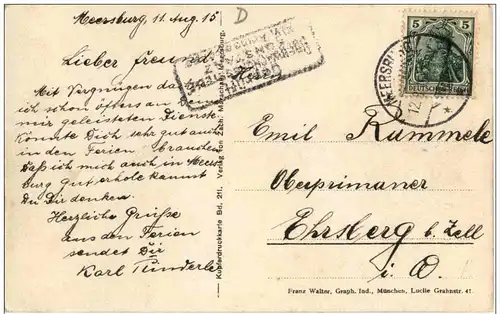 Meersburg, 11. Aug. 15
D
Lieber Freund.
Mit Vergnügen da
ich schon öfters an
mir geleisteten Dienste
könnte Dich sehr gut auch
in den Ferien brauchen
Daß ich mich auch in Meers
burg gut erhole kannst
Du Dir denken.
Herzliche Grüße
aus den Ferien
sendet Dir
Karl
Kupferdruckkarte Bd. 211. Verlag von Zahn, Meersburg.
5 5
DEUTSCHES REICH
MEERSBURG
12
Emil Rummele
Obesprimaner
Ehrsberg b. Zell
i. O.
Franz Walter, Graph. Ind., München, Lucile Grahnstr. 41.